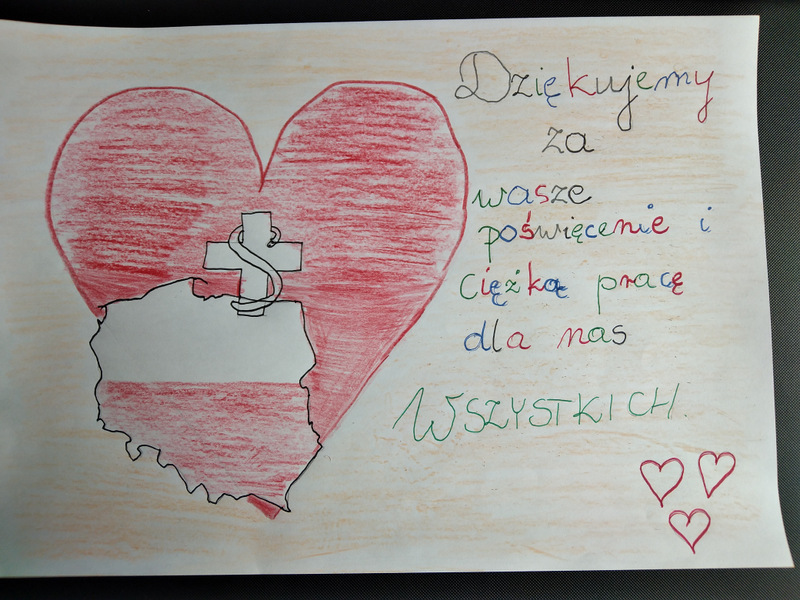 Dziękujemy
za
wasze
poświęcenie i
ciężką pracę
dla nas
WSZYSTKICH